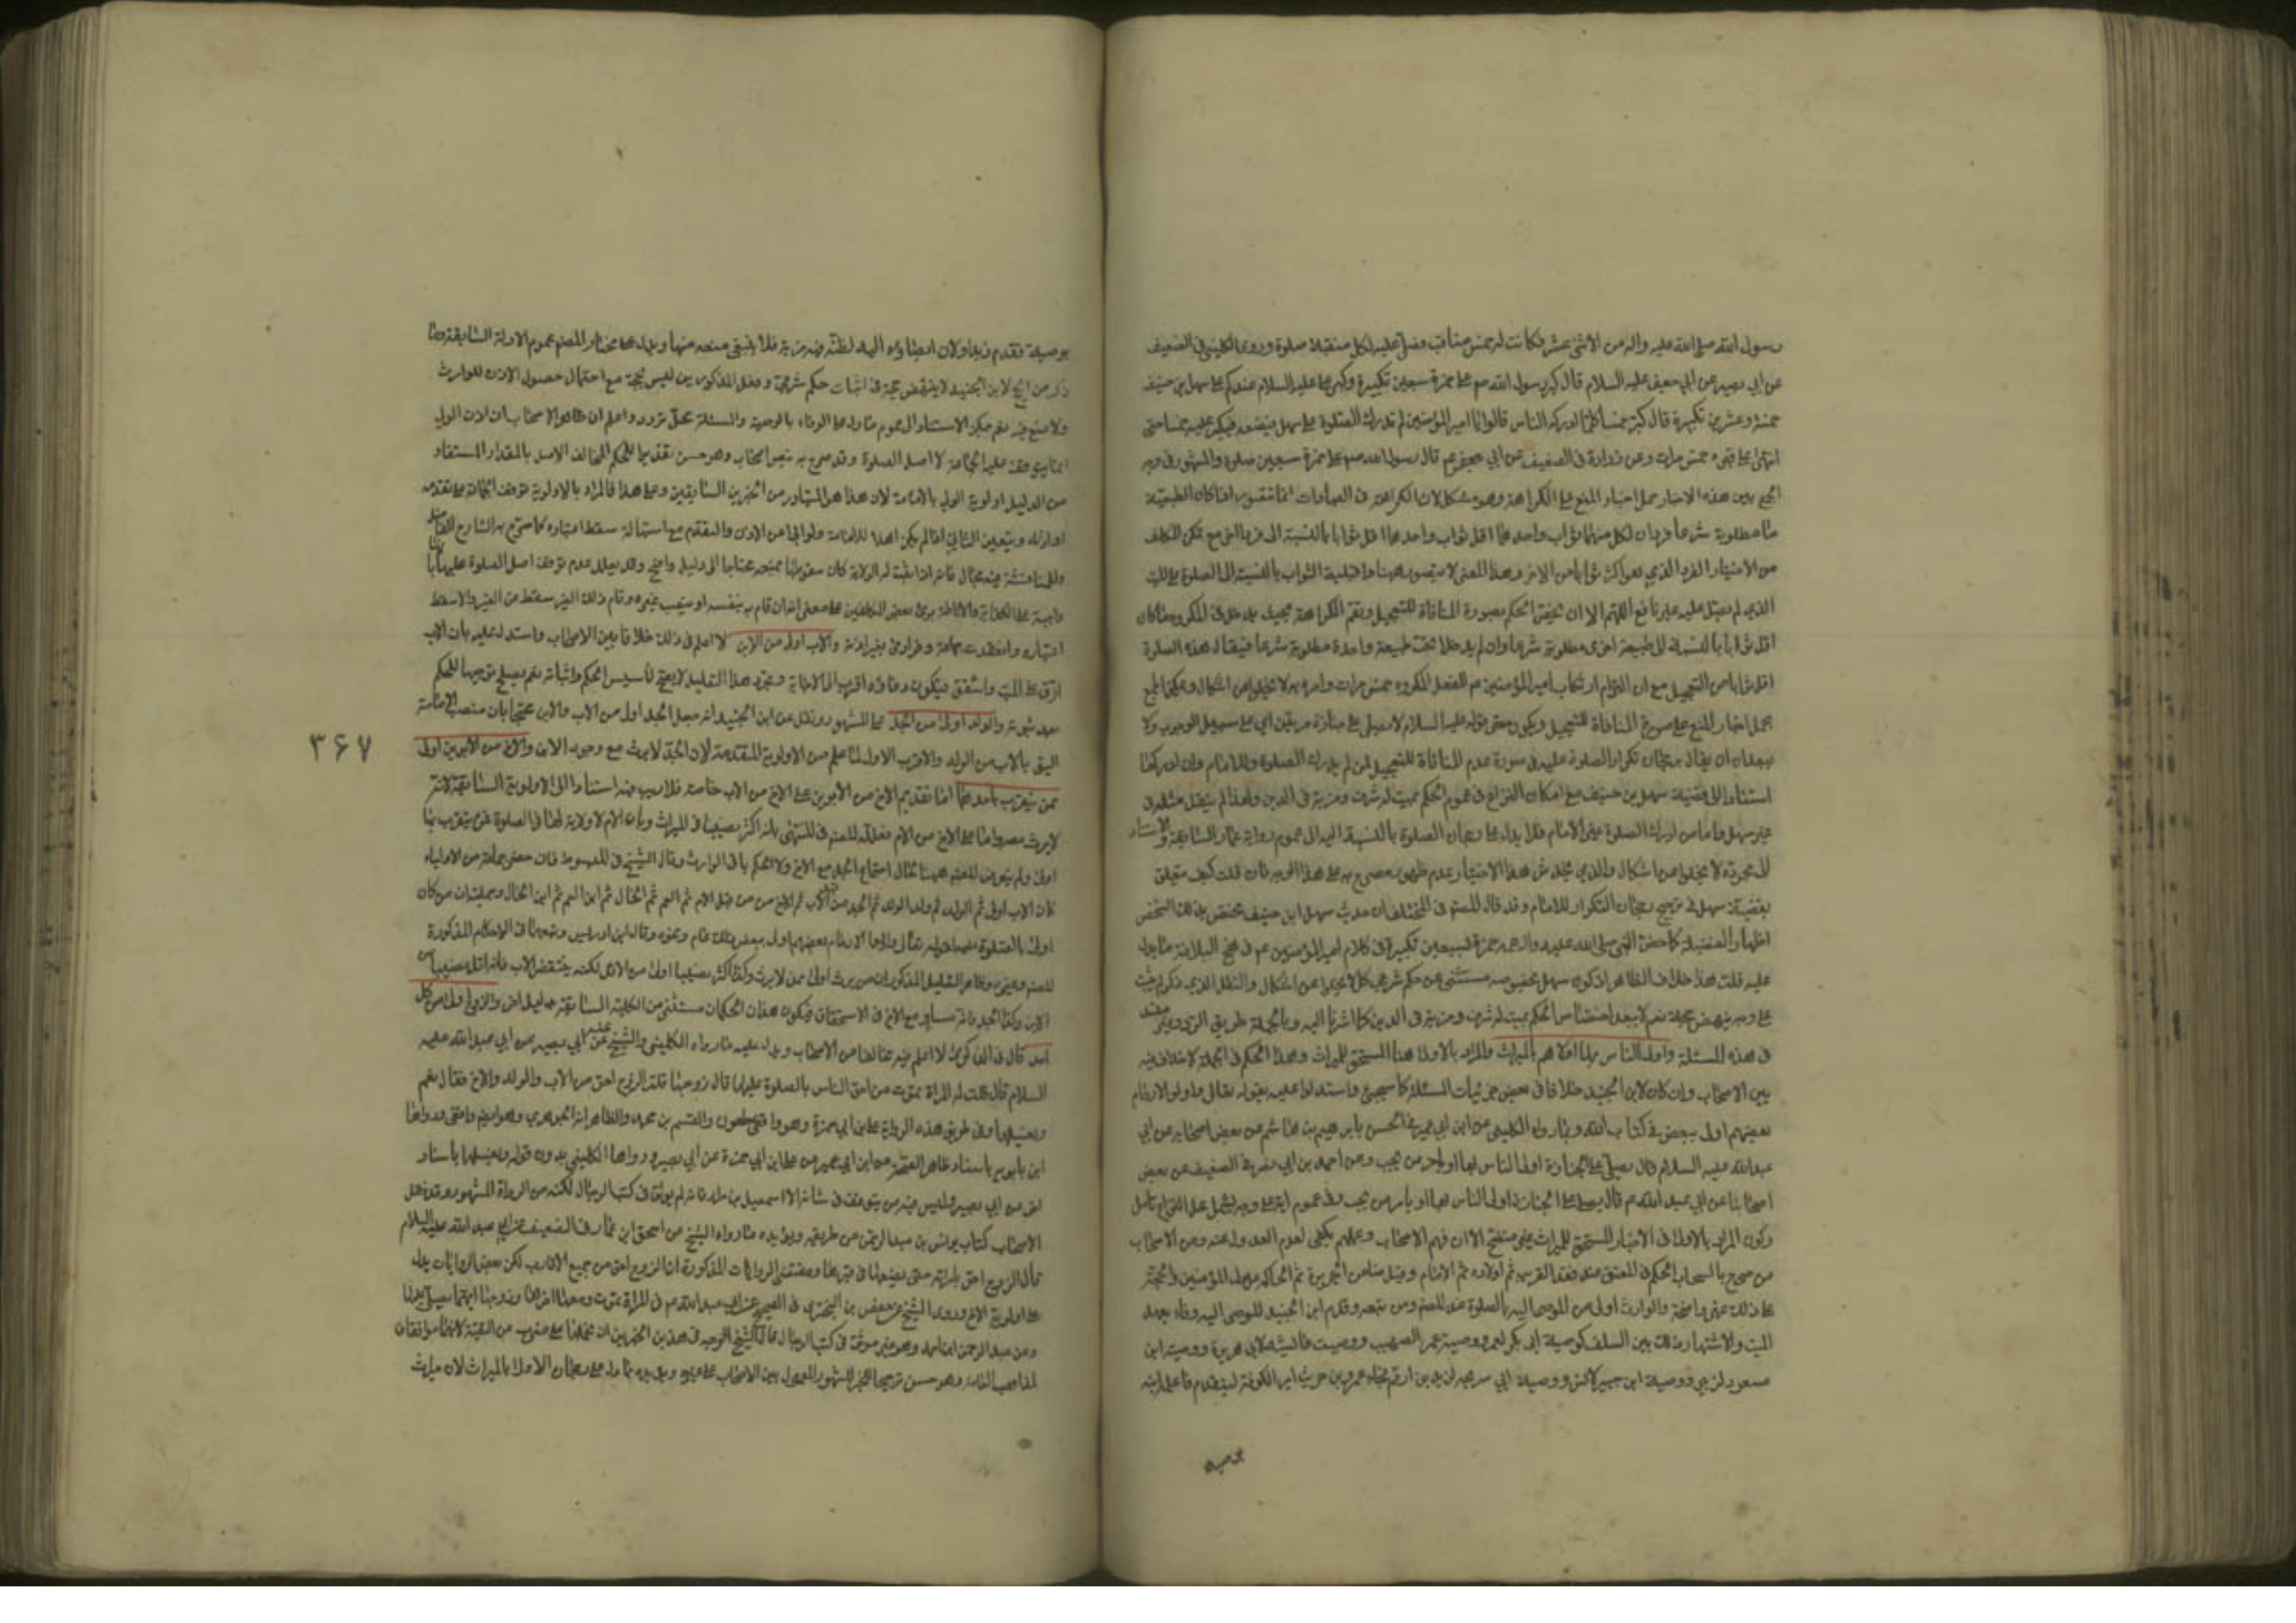 رسول الله صلى الله عليه واله من الاثنى عشر فكانت له خمس مناقب فصلى عليه لكل منقبة صلوة وروى الكليني في الضعيف
عن ابي بصير عن ابي جعفر عليه السلام قال كبر رسول الله صم على حمزة سبعين تكبيرة وكبر على عليه السلام عندكم على سهل بن حنيف
خمسة وعشرين تكبيرة قال كبر خمسا كلما ادركه الناس قالوا يا امير المؤمنين لم ندرك الصلوة على سهل فيضعه فيكبر عليه خمسا حتى
انتهى الى قبره خمس مرات وعن زرارة في الضعيف عن ابي جعفر عم قال رسول الله صم على حمزة سبعين صلوة والمشهور في وجه
الجمع بين هذه الاخبار حمل اخبار المنع على الكراهة وهو مشكل لان الكراهة في العبادات انما تتصور اذا كان الطبيعة
مطلوبة شرعا فردان لكل منهما ثواب واحدهما اقل ثواب واحدهما اقل ثوابا بالنسبة الى فردا اخر مع تمكن المكلف
من الاختيار الفرد الذي هو اكثر ثوابا من الاخر وهذا المعنى لا يتصور ههنا واقلية الثواب بالنسبة الى الصلوة على الميت
الذي لم يصل عليه غير نافع اللهم الا ان يخص الحكم بصورة المنافاة للتعجيل وتعم الكراهة بحيث يدخل في المكروه ما كان
اقل ثوابا بالنسبة الى طبيعة اخرى مطلوبة شرعا وان لم يدخلا تحت طبيعة واحدة مطلوبة شرعا فيقال هذه الصلوة
اقل ثوابا من التعجيل مع ان التزام ارتكاب امير المؤمنين عم للفعل المكروه خمس مرات وامره به لا يخلو عن اشكال ويمكن الجمع
بحمل اخبار المنع على صورة المنافاة للتعجيل ويكون معنى قوله عليه السلام لا يصلى على جنازة مرتين اي على سبيل الوجوب ولا
يبعد ان يقال برجحان تكرار الصلوة عليه في صورة عدم المنافاة للتعجيل لمن لم يدرك الصلوة وللامام وان ادركها
استنادا الى قضية سهل بن حنيف مع امكان النزاع في عموم الحكم بميت له شرف ومزية في الدين ولهذا لم ينقل مثله في
غير سهل واما من ادرك الصلوة غير الامام فلا يدل على رجحان الصلوة بالنسبة اليه الى عموم رواية عمار السابقة والاستناد
لا يخلوا من اشكال والذي يخدش هذا الاختيار عدم ظهور مصرح به على هذا الوجه فان قلت كيف متعلق
بقضية سهل في ترجيح رجحان التكرار للامام وقد قال المصم في المختلف ان حديث سهل ابن حنيف مختص بذلك الشخص
اظهارا لفضيلة كما خص النبي صلى الله عليه واله عمه حمزة لسبعين تكبيرة وفي كلام امير المؤمنين عم في نهج البلاغة ما يدل
عليه قلت هذا خلاف الظاهر اذ كون سهل بخصوصه مستثنى عن حكم شرعي كلي لا يخلوا عن اشكال والنقل الذي ذكر لم يثبت
على وجه ينهض بحجة نعم لا يبعد اختصاص الحكم بميت له شرف ومزية في الدين كما اشرنا اليه وبالجملة طريق التردد
في هذه المسئلة واولى الناس بها اولاهم بالميراث والمراد بالاولى هنا المستحق للميراث وهذا الحكم في الجملة لا خلاف فيه
بين الاصحاب وان كان لابن الجنيد خلافا في بعض جزئيات المسئلة كما سيجئ واستدلوا عليه بقوله تعالى واولو الارحام
بعضهم اولى ببعض في كتاب الله وبما رواه الكليني عن ابن ابي عمير في الحسن بابرهيم بن هاشم عن بعض اصحابه عن ابي
عبد الله عليه السلام قال يصلى على الجنازة اولى الناس بها او يامر من يحب وعن احمد بن ابي نصر في الضعيف عن بعض
اصحابنا عن ابي عبد الله عم قال يصلى على الجنازة اولى الناس بها او يامر من يحب وفي عموم الاية على وجه يشمل محل النزاع تامل
وكون المراد بالاولى في الاخبار المستحق للميراث غير متضح الا ان فهم الاصحاب وعملهم يكفى لعدم العدول عنه ومن الاصحاب
من صرح بانسحاب الحكم في المعتق عند فقد القريب ثم اولاده ثم الامام وقيل ضامن الجريرة ثم الحاكم ثم عدول المؤمنين والحجة
على ذلك غير واضحة والوارث اولى من الموصى اليه بالصلوة عند المصم ومن تبعه وقدم ابن الجنيد الموصى اليه وفاء بعهد
الميت والاشتهار ذلك بين السلف كوصية ابى بكر لعمر ووصية عمر الصهيب ووصيت عائشة لابي هريرة ووصية ابن
مسعود لزبير ووصية ابن جبير لانس ووصية ابي سريحه لزيد بن ارقم فجاء عمرو بن حريث امير الكوفة ليتقدم فاعلمه ابنه
بوصية
بوصية فقدم زيدا ولان ايصاؤه اليه لظنه فيه مزية فلا ينبغي منعه منها ويدل على مختار المصم عموم الادلة السابقة وما
ذكر من الحج لابن الجنيد لا ينهض حجة في اثبات حكم شرعي وفعل المذكورين ليس بحجة مع احتمال حصول الاذن للوارث
ولا منع فيه نعم يمكن الاستناد الى عموم ما دل على الوفاء بالوصية والمسئلة محل تردد واعلم ان ظاهر الاصحاب ان اذن الولي
انما يتوقف عليه الجماعة لا اصل الصلوة وقد صرح به بعض اصحاب وهو حسن تقديما للحكم المخالف الاصل بالمقدار المستفاد
من الدليل اولوية الولي بالامامة لان هذا هو المتبادر من الخبرين السابقين وعلى هذا فالمراد بالاولوية توقف الجماعة على تقدمه
او اذنه ويتعين الثاني اذا لم يكن اهلا للامامة ولو ابى عن الاذن والتقدم مع استهالة سقط اعتباره كما صرح به الشارح الفاضل
وللمناقشة فيه مجال فانه اذا ثبت له الولاية كان سقوطها بمنعه محتاجا الى دليل واضح وقد يعلل عدم توقف اصل الصلوة عليه بانها
واجبة على الكفاية والاناطة براى بعض المكلفين على معنى انه ان قام به بنفسه او ينصب غيره وقام ذلك الغير سقط عن الغير والا سقط
اعتباره وانعقدت جماعة وفرادى بغير اذنه والاب اولى من الابن لا اعلم في ذلك خلافا بين الاصحاب واستدل عليه بان الاب
ارق على الميت واشفق فيكون دعاؤه اقرب الى الاجابة ومجرد هذا التعليل لا يصح لتاسيس الحكم واثباته نعم يصلح توجيها للحكم
بعد ثبوته والولد اولى من الجد على المشهور ونقل عن ابن الجنيد انه جعل الجد اولى من الاب والابن محتجا بان منصب الامامة
اليق بالاب من الولد والاقرب الاول لما علم من الاولوية المتقدمة لان الجد لا يرث مع وجود الابن والاخ من الابوين اولى
ممن يتقرب باحدهما اما تقديم الاخ من الابوين على الاخ من الاب خاصة فلا ريب فيه استنادا الى الاولوية السابقة لانه
لا يرث معه واما على الاخ من الام فعلله المصم في المنتهى بانه اكثر نصيبا في الميراث وبان الام لا ولاية لها في الصلوة فمن يتقرب بها
اولى ولم يتعرض المصم ههنا لحال اجتماع الجد مع الاخ ولا لحكم باقي الوارث وقال الشيخ في المبسوط فان حضر جماعة من الاولياء
كان الاب اولى ثم الولد ثم ولد الولد ثم الجد من الاب ثم الاخ من قبل الام ثم العم ثم الخال ثم ابن العم ثم ابن الخال وجملته ان من كان
اولى بالصلوة عليه لقوله تعالى واولوا الارحام بعضهم اولى ببعض وذلك عام ونحوه وقال ابن ادريس وتبعهما في الاحكام المذكورة
المصم وغيره وظاهر التعليل المذكور ان من يرث اولى ممن لا يرث وكذا اكثر نصيبا اولى من الاقل لكنه ينتقض الاب فانه اقل نصيبا من
الابن وكذا الجد فانه مساو مع الاخ في الاستحقاق فيكون هذان الحكمان مستثنى من الكلية السابقة بدليل اخر والزوج اولى من كل
احد قال في الذكرى لا اعلم فيه مخالفا من الاصحاب ويدل عليه ما رواه الكليني والشيخ عنه عن ابي بصير عن ابي عبد الله عليه
السلام قال قلت له المراة تموت من احق الناس بالصلوة عليها قال زوجها قلت الزوج احق من الاب والولد والاخ فقال نعم
ويغسلها وفي طريق هذه الرواية على ابن ابي حمزة وهو واقفى ملعون والقسم بن محمد والظاهر انه الجوهرى وهو ايض واقفى ورواها
ابن بابويه باسناد ظاهر الصحة عن ابن ابي عمير عن على ابن ابي حمزة عن ابي بصير ورواها الكليني بدون قوله ويغسلها باسناد
اخر عن ابي بصير وليس فيه من يتوقف في شانه الا اسمعيل بن مرار فانه لم يوثق في كتب الرجال لكنه من الرواة المشهور وقد نقل
الاصحاب كتاب يونس بن عبد الرحمن من طريقه ويؤيده ما رواه الشيخ عن اسحق ابن عمار في الضعيف عن ابي عبد الله عليه السلام
قال الزوج احق بامراته حتى يضعها في قبرها ومقتضى الروايات المذكورة ان الزوج احق من جميع الاقارب لكن بعض الروايات يدل
على اولوية الاخ وروى الشيخ عن حفص بن البختري في الصحيح عن ابي عبد الله عم في المراة تموت ومعها اخوها وزوجها ايهما يصلى عليها
وعن عبد الرحمن ابن ابي عبد وهو غير موثق في كتب الرجال قال الشيخ الوجه في هذين الخبرين ان نحملهما على ضرب من التقية لانهما موافقان
لمذاهب العامة وهو حسن ترجيحا للخبر المشهور المعمول بين الاصحاب على غيره ويؤيده ما دل على رجحان الاولى بالميراث لان ميراث
٣۶٧